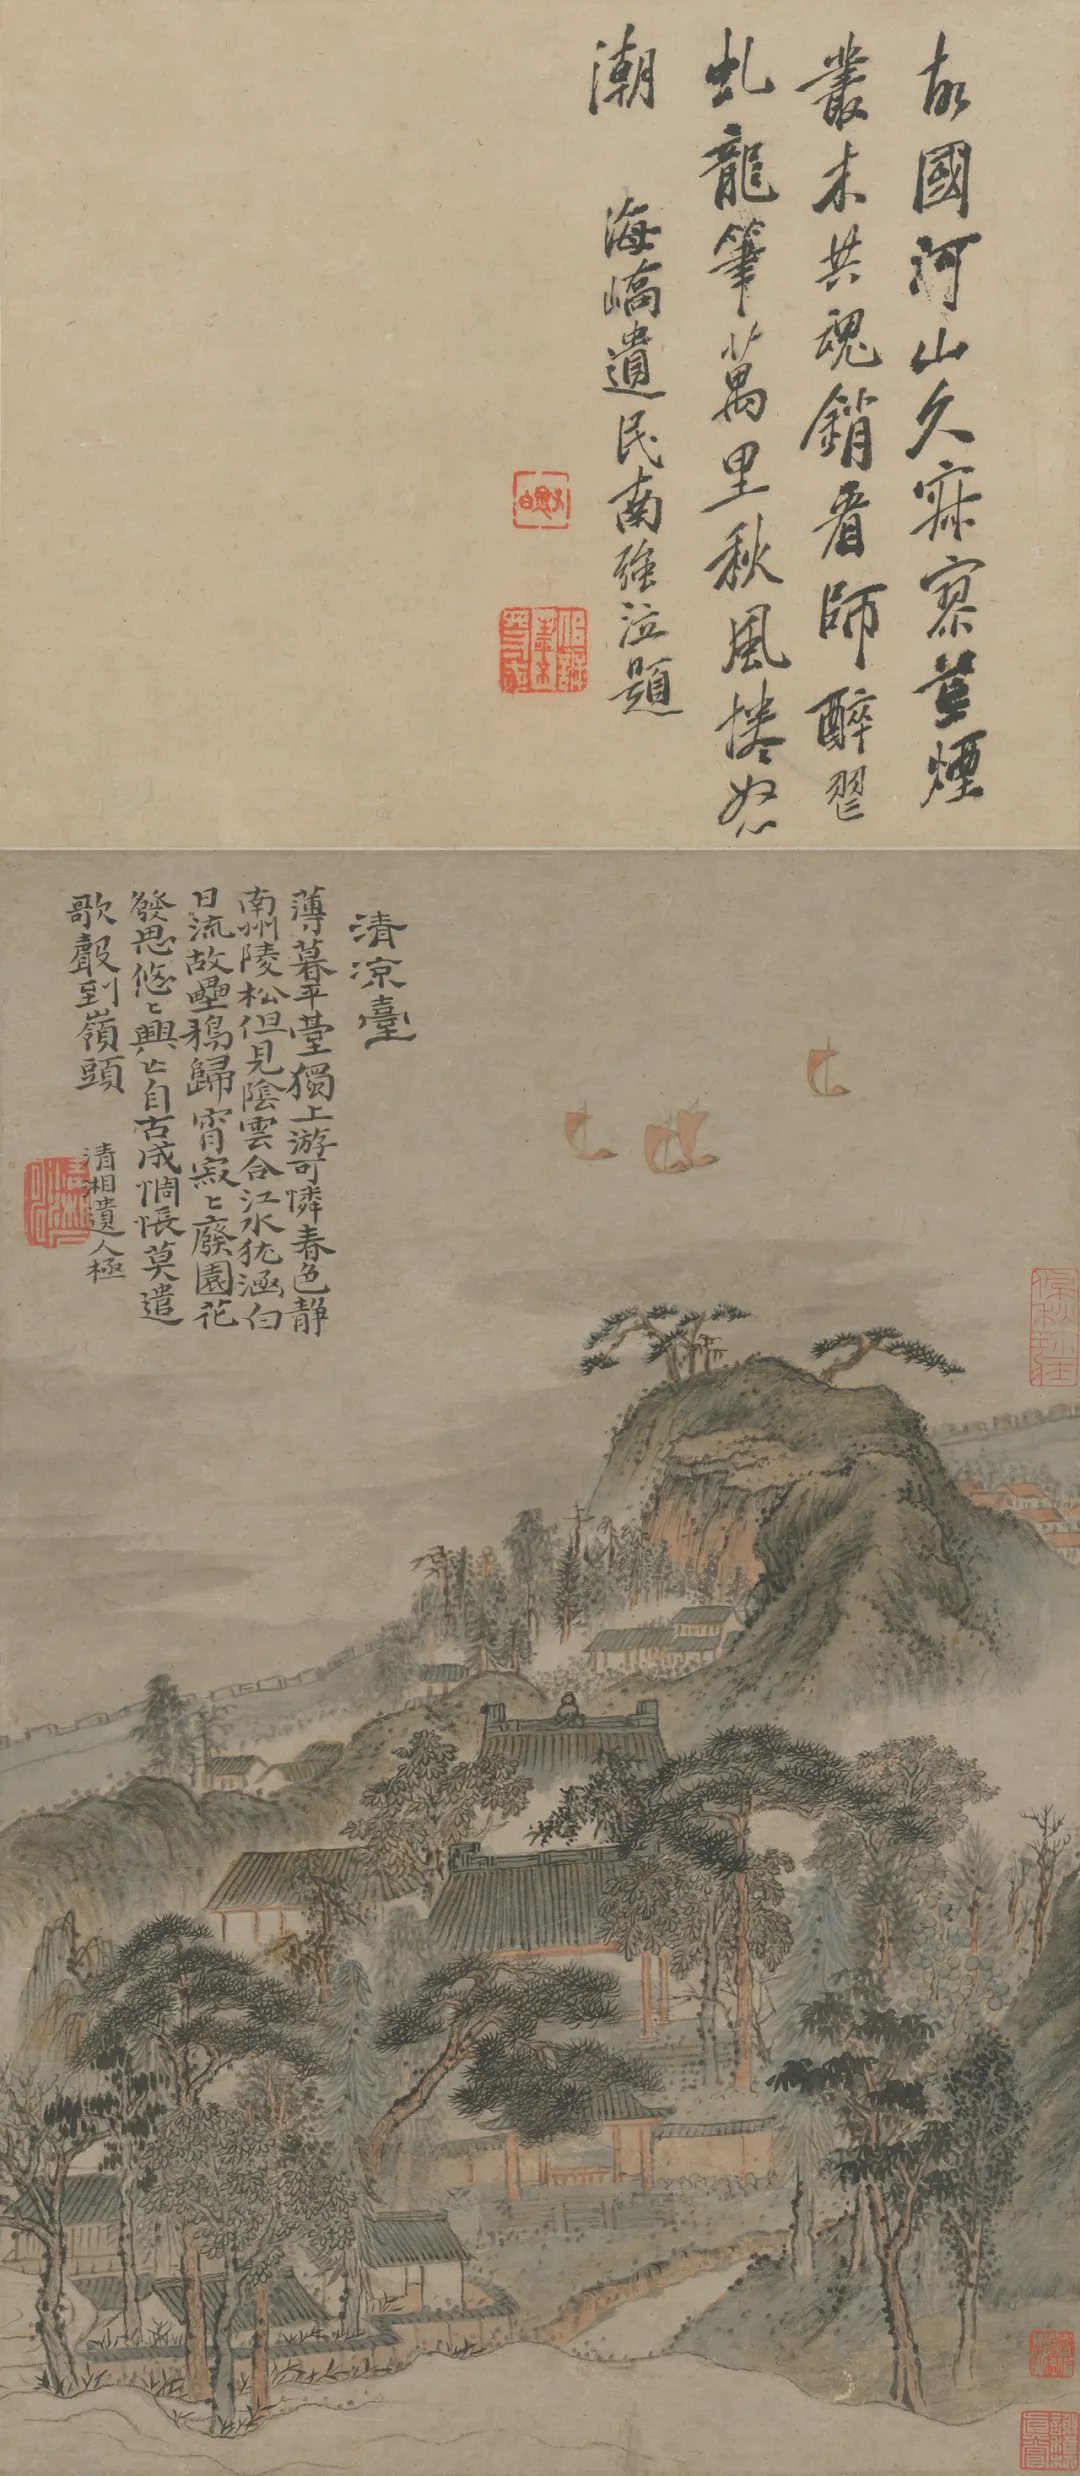 故國河山久寂寥蔓煙
叢木共魂銷看師醉翟
虬龍筆萬里秋風捲怒
潮
海嶠遺民南強泣題
清涼臺
薄暮平臺獨上游可憐春色靜
南州陵松但見陰雲合江水猶涵白
日流故壘鴉歸宵寂〻廢園花
發思悠〻興亡自古成惆悵莫遣
歌聲到嶺頭
清湘遺人極